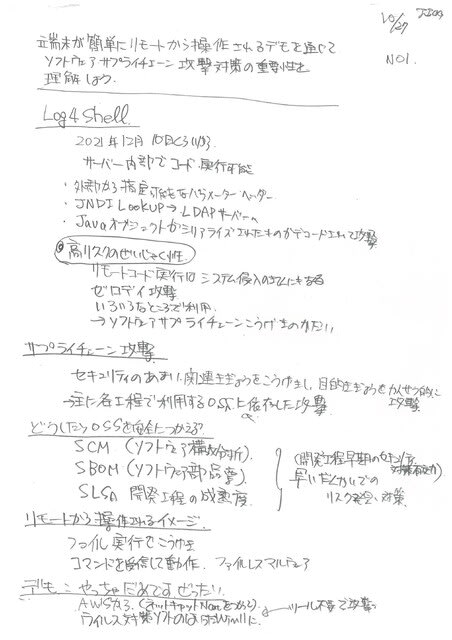 10/27
NO1.
端末が簡単にリモートから操作されるデモを通じて
ソフトウェアサプライチェーン攻撃対策の重要性を
理解しよう.
Log4Shell.
2021年12月10日くらい
サーバー内部でコード実行可能
・外部から指定可能なパラメーター ヘッダー
・JNDI LOOKUP→LDAPサーバーへ
・Javaオブジェクトがシリアライズされたものがデコードされて攻撃
高リスクのぜいじゃく性
リモートコード実行は システム侵入の
ゼロデイ攻撃
いろいろなところで利用.
→ソフトウェアサプライチェーンこうげきの
サプライチェーン攻撃.
セキュリティのあまい関連きぎょうをこうげきし、目的きぎょうを 攻撃
→主に各工程で利用するOSSに依存した攻撃
どうしたらOSSを安全につかえる?
SCM (ソフトウェア構成分析).
SBOM (ソフトウェア部品表).
SLSA 開発工程の成熟度.
(開発工程早期のセキュリティ
早いだんかいでの
リスク発見、対策.
リモートから操作されるイメージ.
ファイル実行でこうげき
コマンドを受信して動作. ファイルレスマルウェア
デモ:やっちゃだめですぜったい.
AWSから.(ネットキャット つかう).
ツール不要で攻撃
ウイルス対策ソフトの